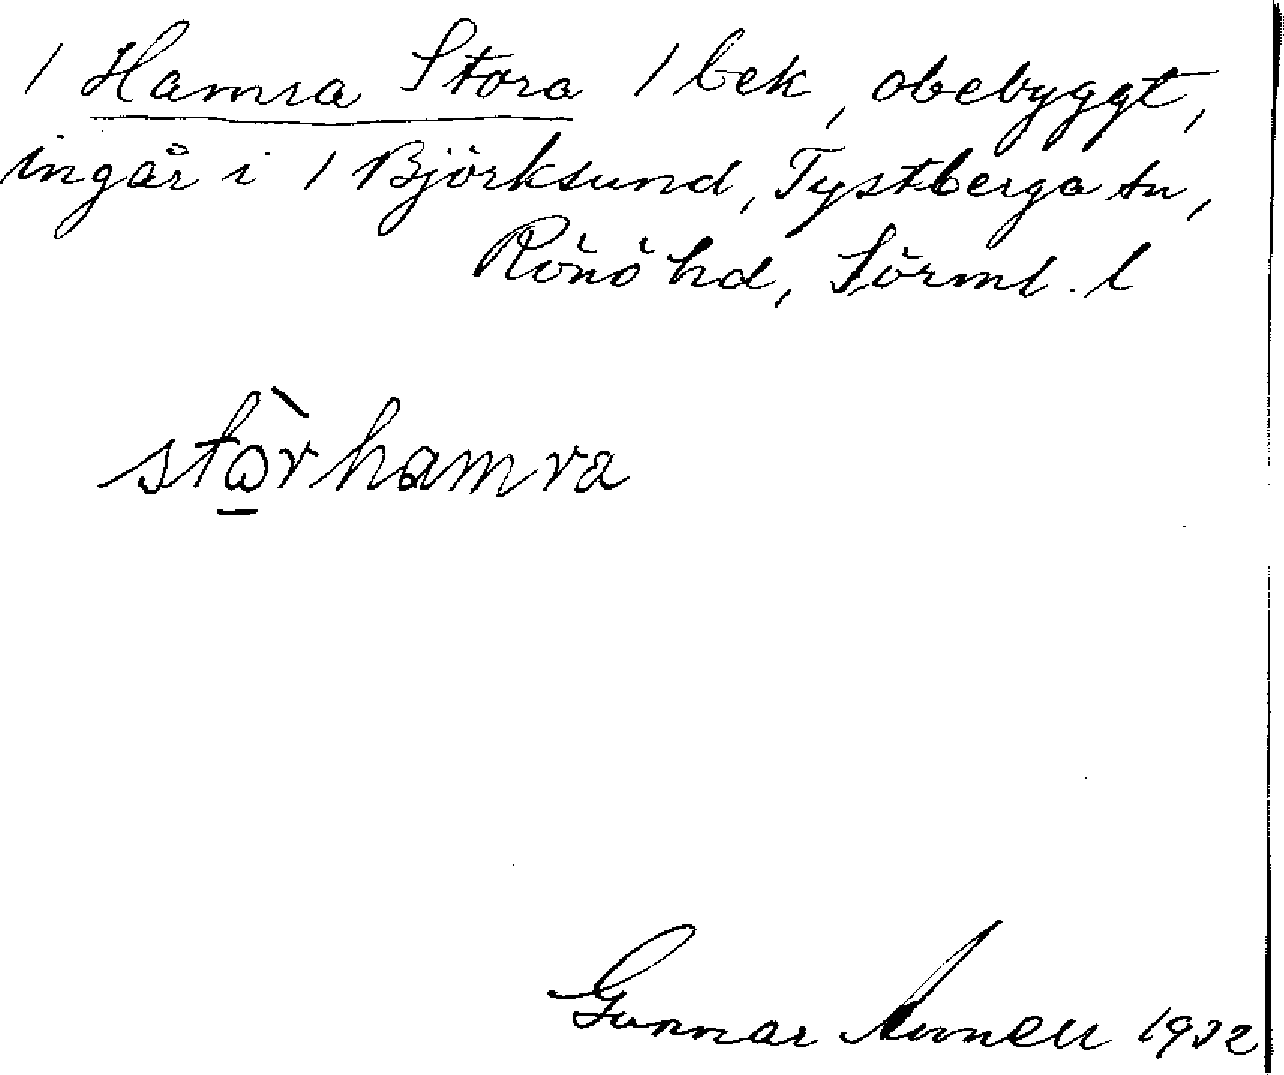 / Hamra Stora / bek, obebyggt,
ingår i / Björksund, Tystberga sn,
Rönö hd, Sörml. l
stòrhamra
Gunnar 1932